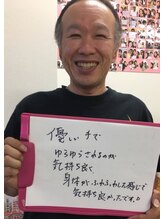 優しい手で
ゆるゆるされるのが
気持ち良く
身体がふわふわした感じで
気持ち良かったです。